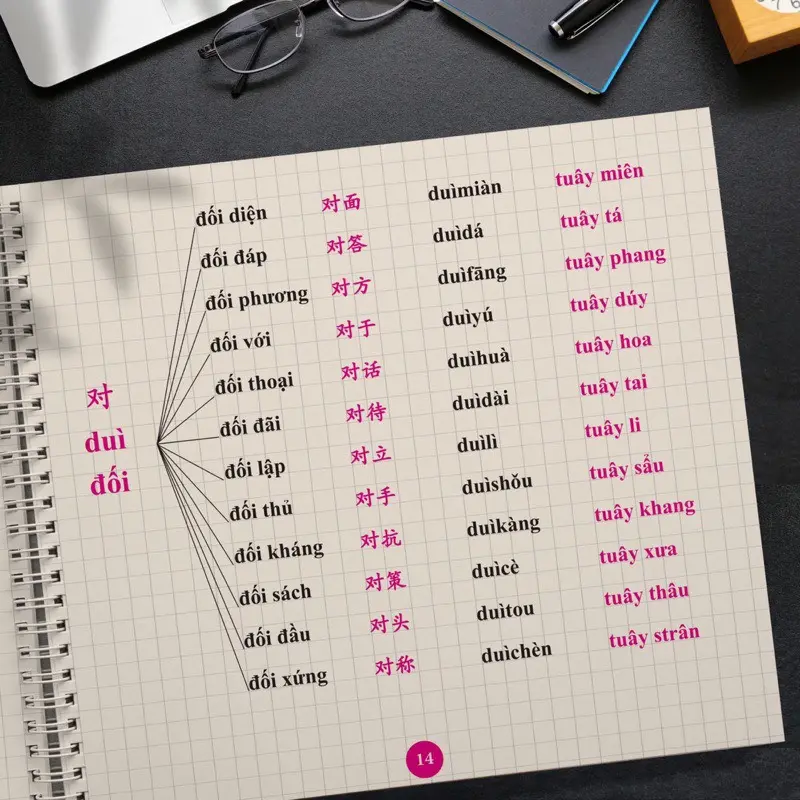 对
duì
đối
đối diện 对面 duìmiàn tuây miên
đối đáp 对答 duìdá tuây tá
đối phương 对方 duìfāng tuây phang
đối với 对于 duìyú tuây dúy
đối thoại 对话 duìhuà tuây hoa
đối đãi 对待 duìdài tuây tai
đối lập 对立 duìlì tuây li
đối thủ 对手 duìshǒu tuây sẩu
đối kháng 对抗 duìkàng tuây khang
đối sách 对策 duìcè tuây xưa
đối đầu 对头 duìtou tuây thâu
đối xứng 对称 duìchèn tuây strân
14